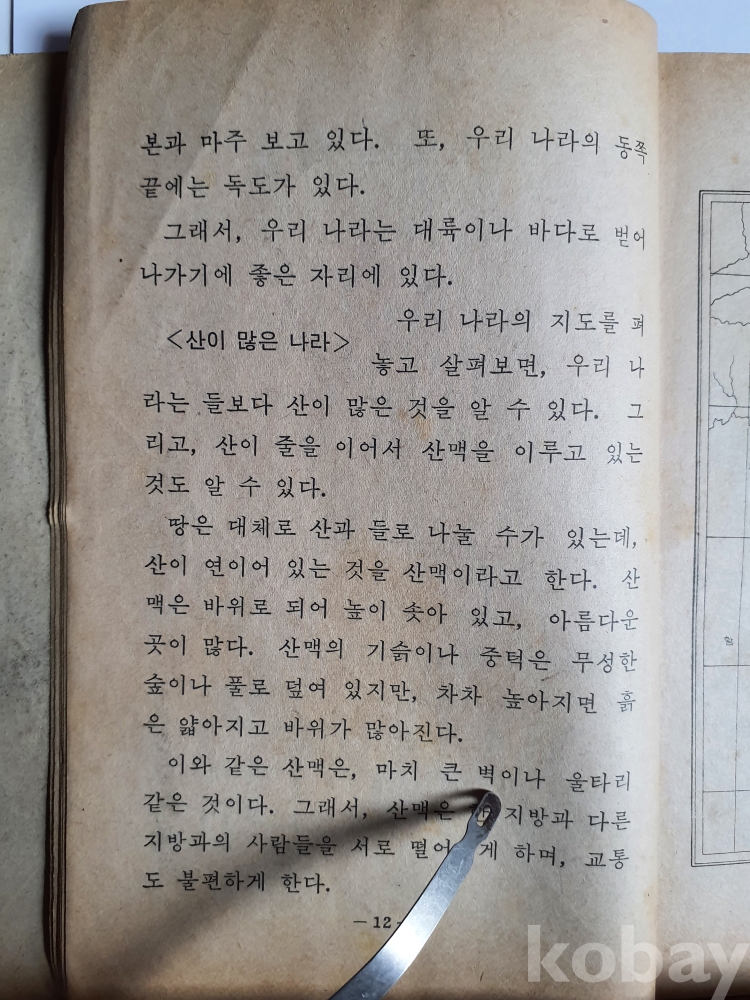 본과 마주 보고 있다. 또, 우리 나라의 동쪽
끝에는 독도가 있다.
그래서, 우리 나라는 대륙이나 바다로 벋어
나가기에 좋은 자리에 있다.
<산이 많은 나라>
우리 나라의 지도를 펴
놓고 살펴보면, 우리 나
라는 들보다 산이 많은 것을 알 수 있다. 그
리고, 산이 줄을 이어서 산맥을 이루고 있는
것도 알 수 있다.
땅은 대체로 산과 들로 나눌 수가 있는데,
산이 연이어 있는 것을 산맥이라고 한다. 산
맥은 바위로 되어 높이 솟아 있고, 아름다운
곳이 많다. 산맥의 기슭이나 중턱은 무성한
숲이나 풀로 덮여 있지만, 차차 높아지면 흙
은 얇아지고 바위가 많아진다.
이와 같은 산맥은, 마치 큰 벽이나 울타리
같은 것이다. 그래서, 산맥은 지방과 다른
지방과의 사람들을 서로 떨어 게 하며, 교통
도 불편하게 한다.
— 12 -
kobay